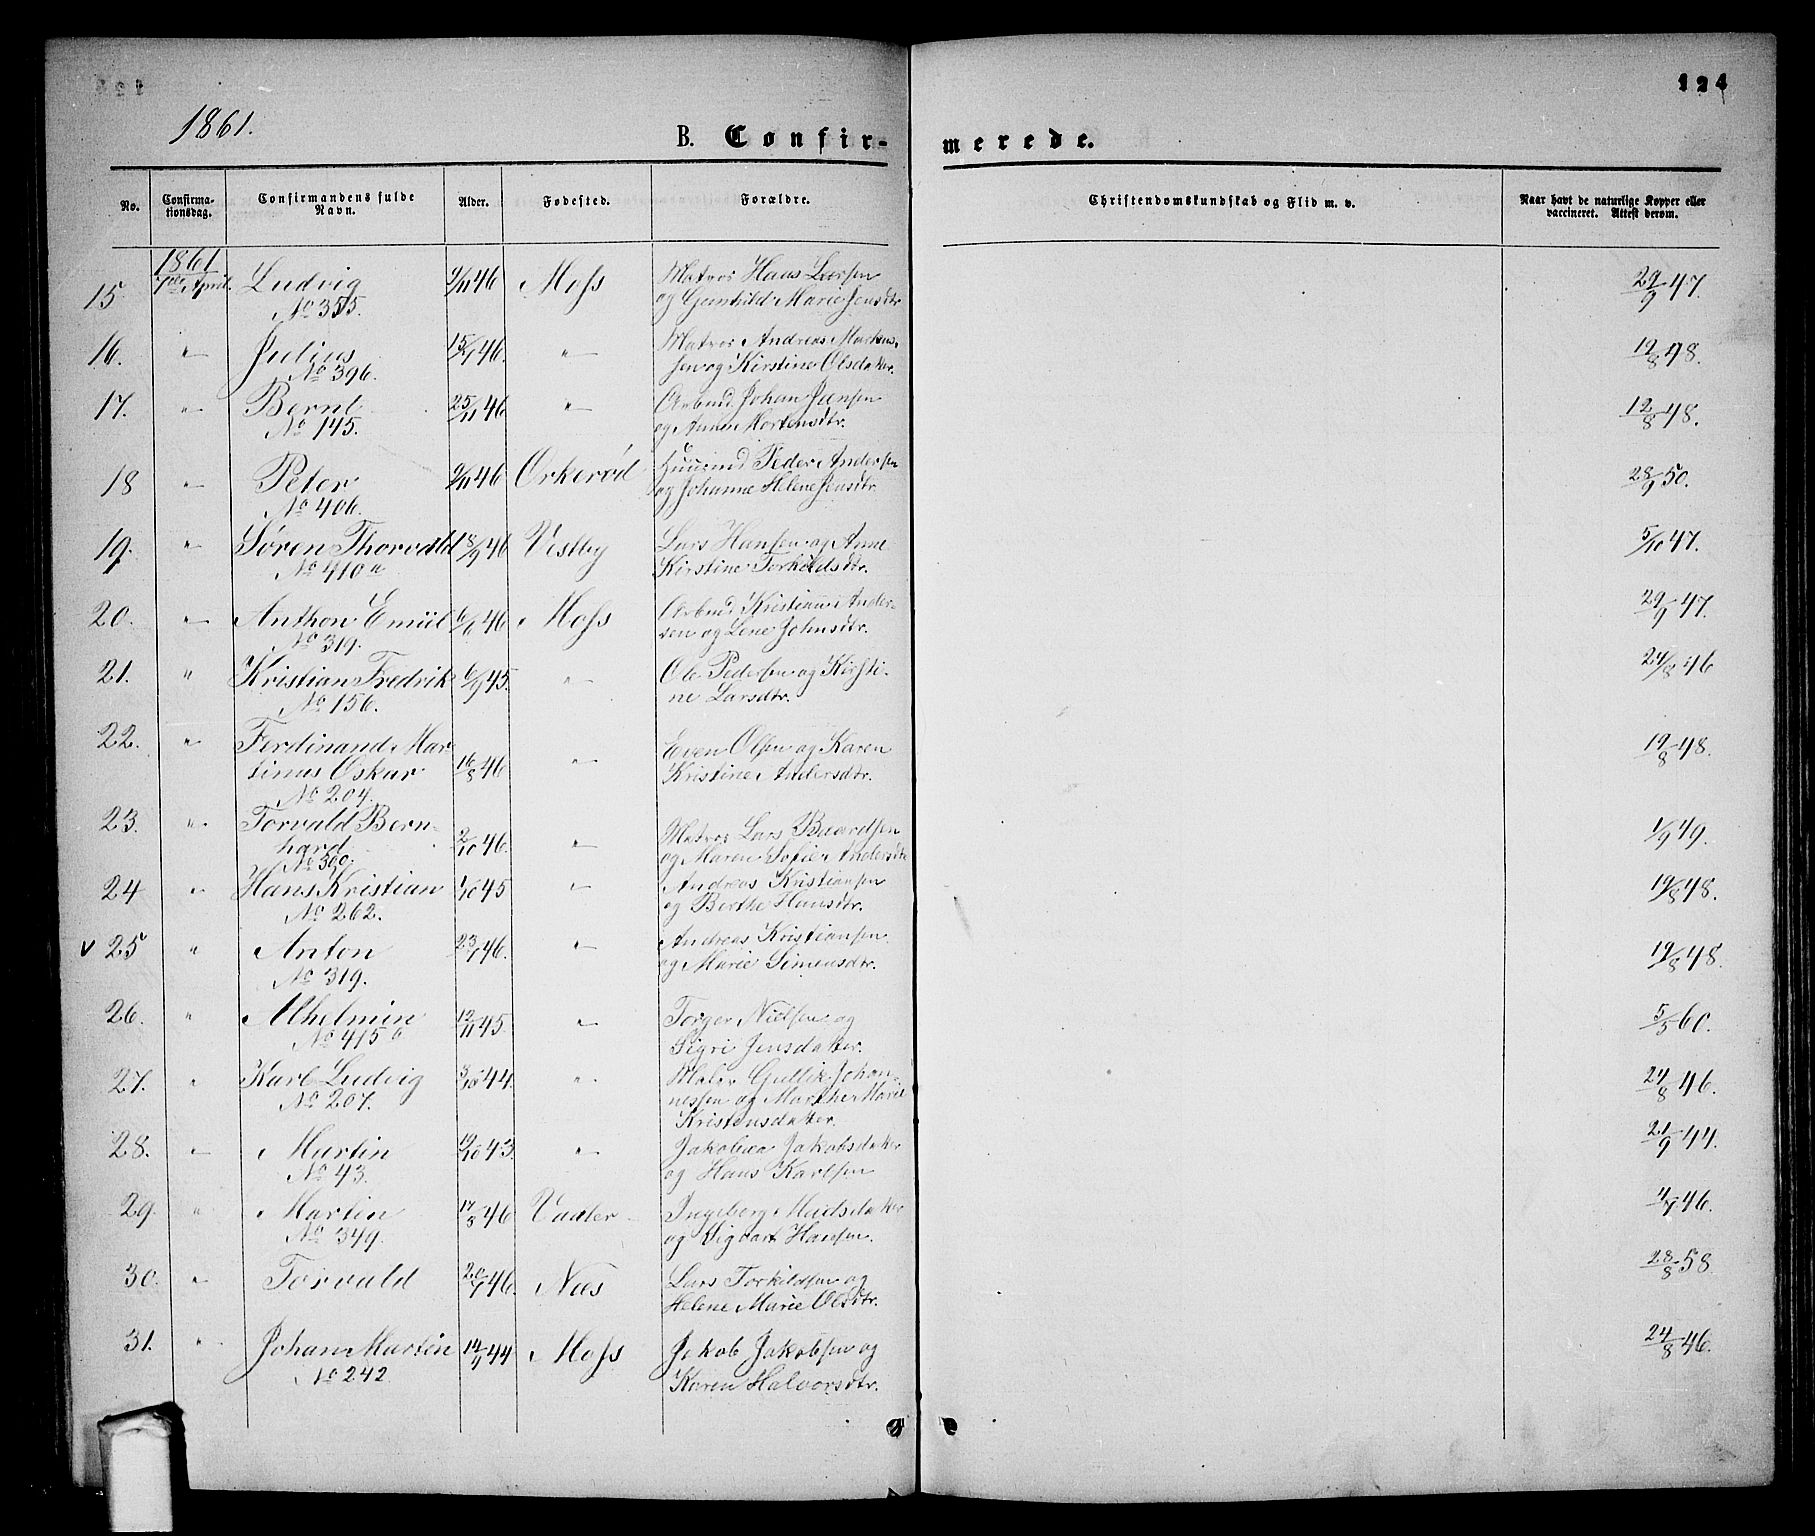 124
1861.
B. Confir-
merede.
No.
Confirma-
tionsdag.
Confirmandens fulde
Navn.
Alder.
Fødested.
Forældre.
Christendomskundskab og Flid m. v.
Naar havt de naturlige Kopper eller
vaccineret. Attest derom.
1861
15. 7de April. Ludvig 9/11 46 Moss Matros Hans Larsen 29/9 47.
No 355. og Gunhild Marie Jensdtr
16. " Julius 46. " Matros Andreas Martens- 19/8 48.
No 396. sen og Kirstine Olsdatter.
17. " Bernt 25/11 46 " Arbmd Johan Jensen 12/8 48.
No 145. og Anne Mortensdtr.
18 " Peter 9/11 46 Orkerød Huusmd Peder Andersen 28/9 50.
No 406. og Johanne Helene Jensdtr.
19. " Søren Thorvald 18/9 46 Vestby Lars Hansen og Anne 5/10 47.
No 410 a Kirstine Torkeldsdtr.
20. " Anthon Emiil 6/6 46 Moss Arbmd Kristian Ander- 29/9 47.
No 319. sen og Lene Johnsdtr.
21. " Kristian Fredrik 6/9 45. " Ole Pedersen og Kirsti- 24/8 46
No 156. ne Larsdtr.
22. " Ferdinand Mar-
tinus Oskar 16/8 46 " Even Olsen og Karen 19/8 48.
No 204. Kristine Andersdtr.
23. " Torvald Bern-
hard 2/10 46. " Matros Lars Baardsen 1/9 49.
No 390. og Maren Sofie Andersdtr
24 " Hans Kristian 1/10 45 " Andreas Kristiansen 19/8 48.
No 262. og Berthe Hansdtr.
v 25 " Anton 23/1 46. " Andreas Kristiansen 19/8 48.
No 319. og Marie Simensdtr.
26. " Alhelmin 12/11 45. " Torger Nielsen og 5/5 60.
No 415 b Sigri Jensdatter.
27. " Karl Ludvig 3/10 44. " Maler Gullik Johan- 24/8 46.
No 207. nessen og Marthe Marie
Kristensdatter.
28. " Martin 19/10 43. " Jakobea Jakobsdatter 21/9 44.
No 43. og Hans Karlsen
29. " Martin 17/3 46 Vaaler Ingeborg 4/7 46.
No 349. og Sigvart Hansen.
30. " Torvald 20/1 46. Næs Lars Torkildsen og 28/8 58
Helene Marie Olsdtr.
31. " Johan Martin 14/9 44 Moss Jakob Jakobsen og 24/8 46.
No 242 Karen Halvorsdtr.